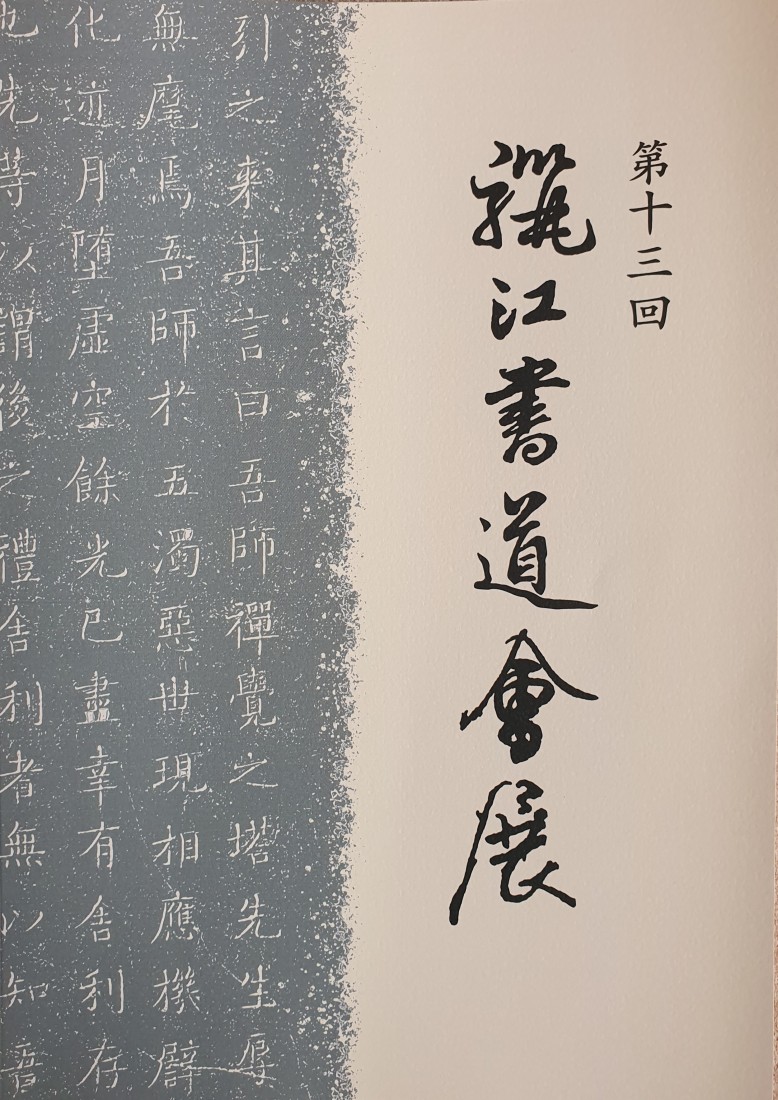 第十三回
驪江書道會展
引之來其言曰吾師禪覺之塔先生辱
無麾焉吾師於五濁惡世現相應機
化迹月墮虛空餘光已盡幸有舍利存
也先等以謂後之禮舍利者無以知吾